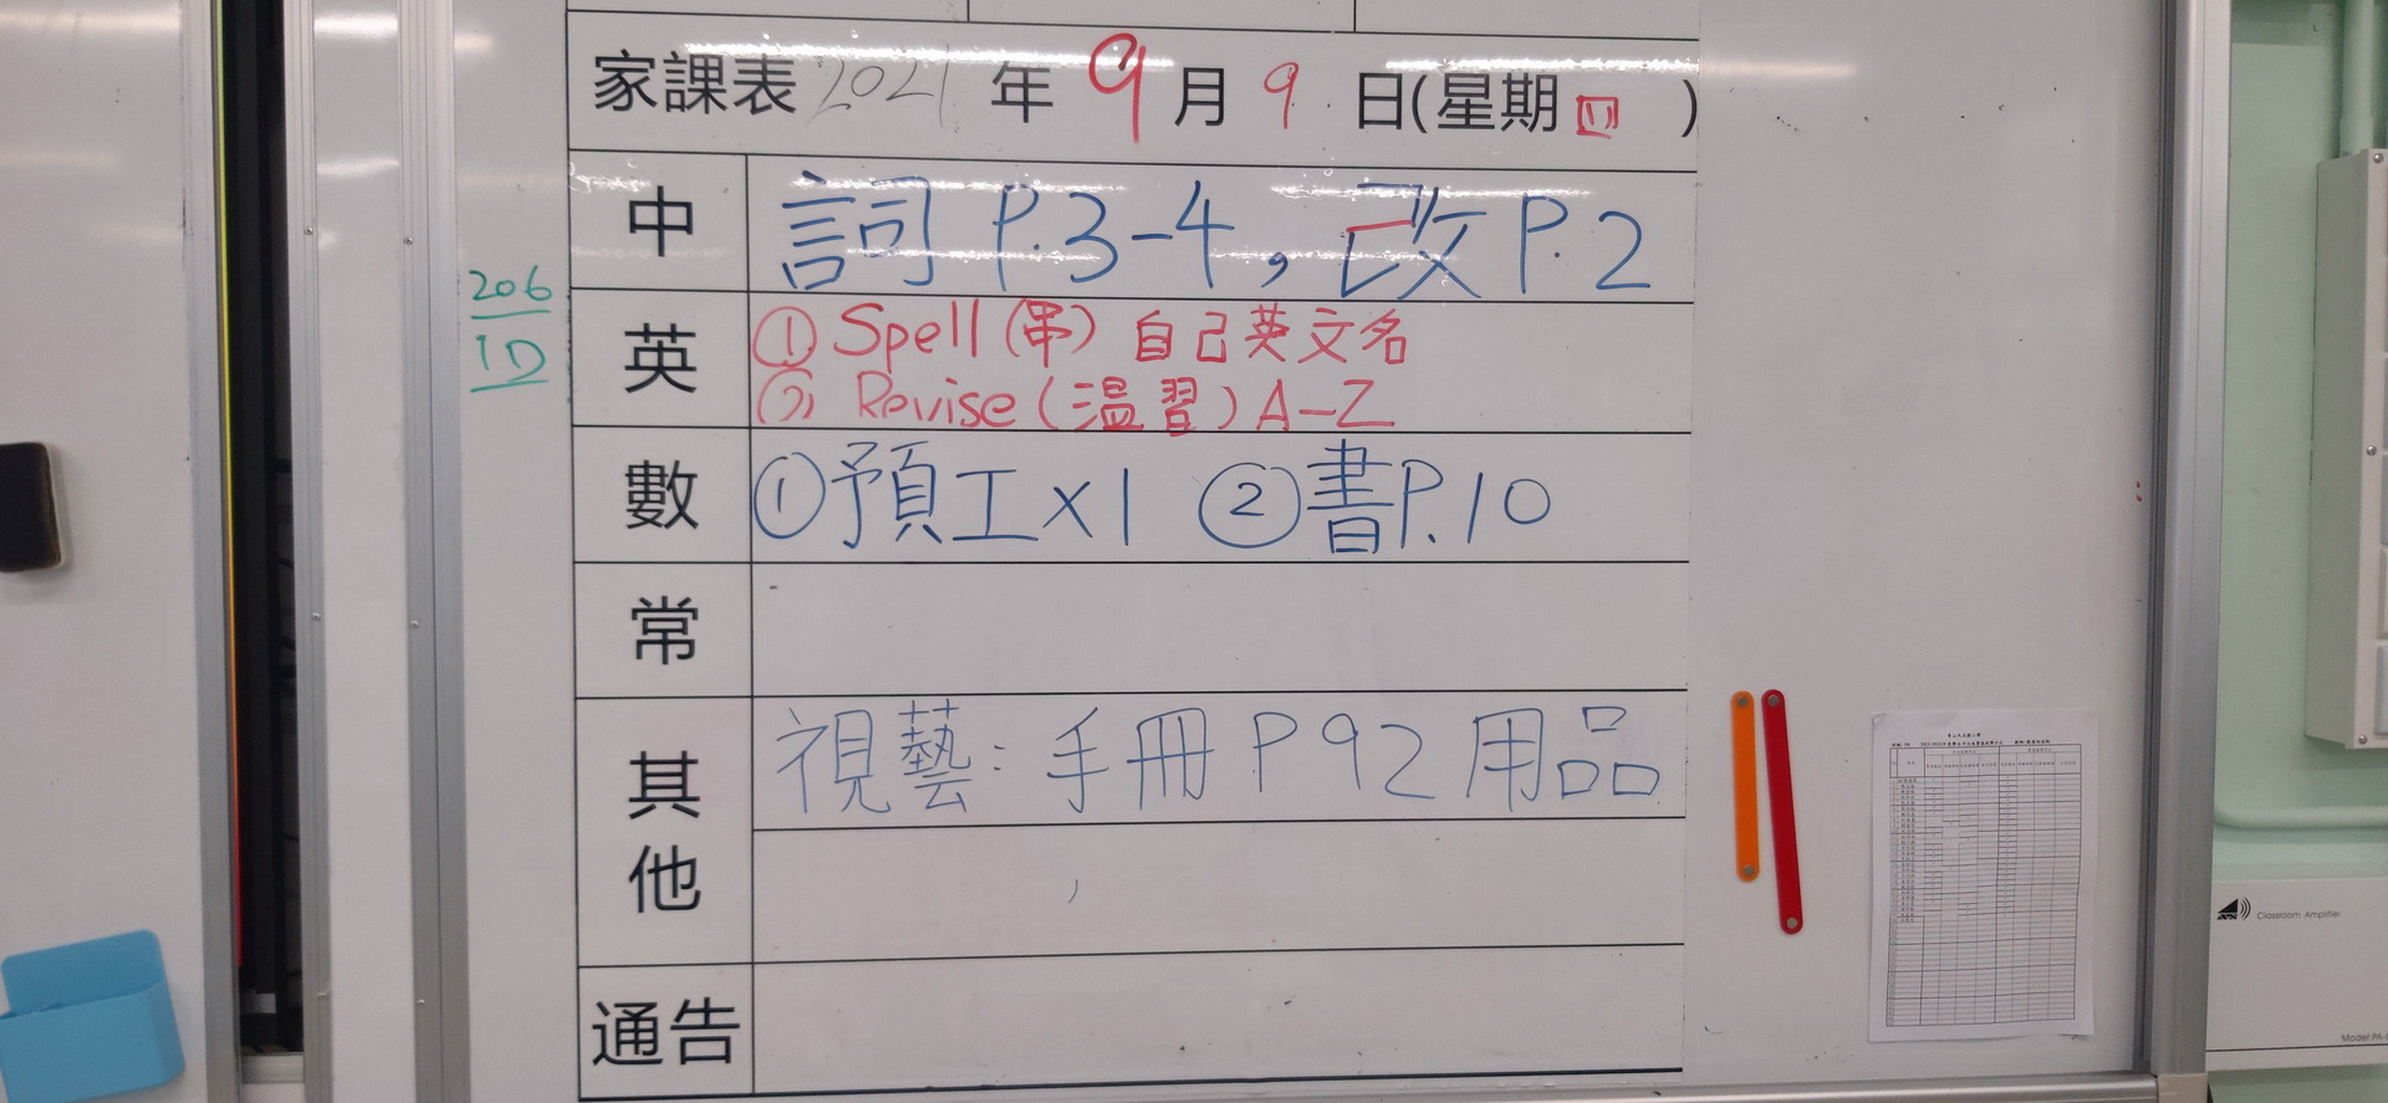 家課表 2021 年 9 月 9 日(星期四)
中 詞 P.3-4, 改 P.2
206
1D
英 ① Spell (串) 自己英文名
② Revise (溫習) A-Z
數 ①預工x1 ②書P.10
常
其他 視藝: 手冊 P92 用品
通告
Classroom Amplifier
Model:PA-